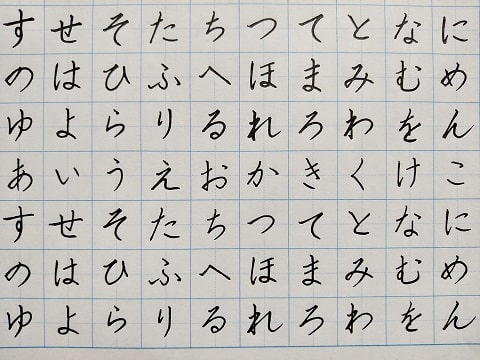 すせそたちつてとなに
のはひふへほまみむめ
ゆよらりるれろわをん
あいうえおかきくけこ
すせそたちつてとなに
のはひふへほまみむめ
ゆよらりるれろわをん